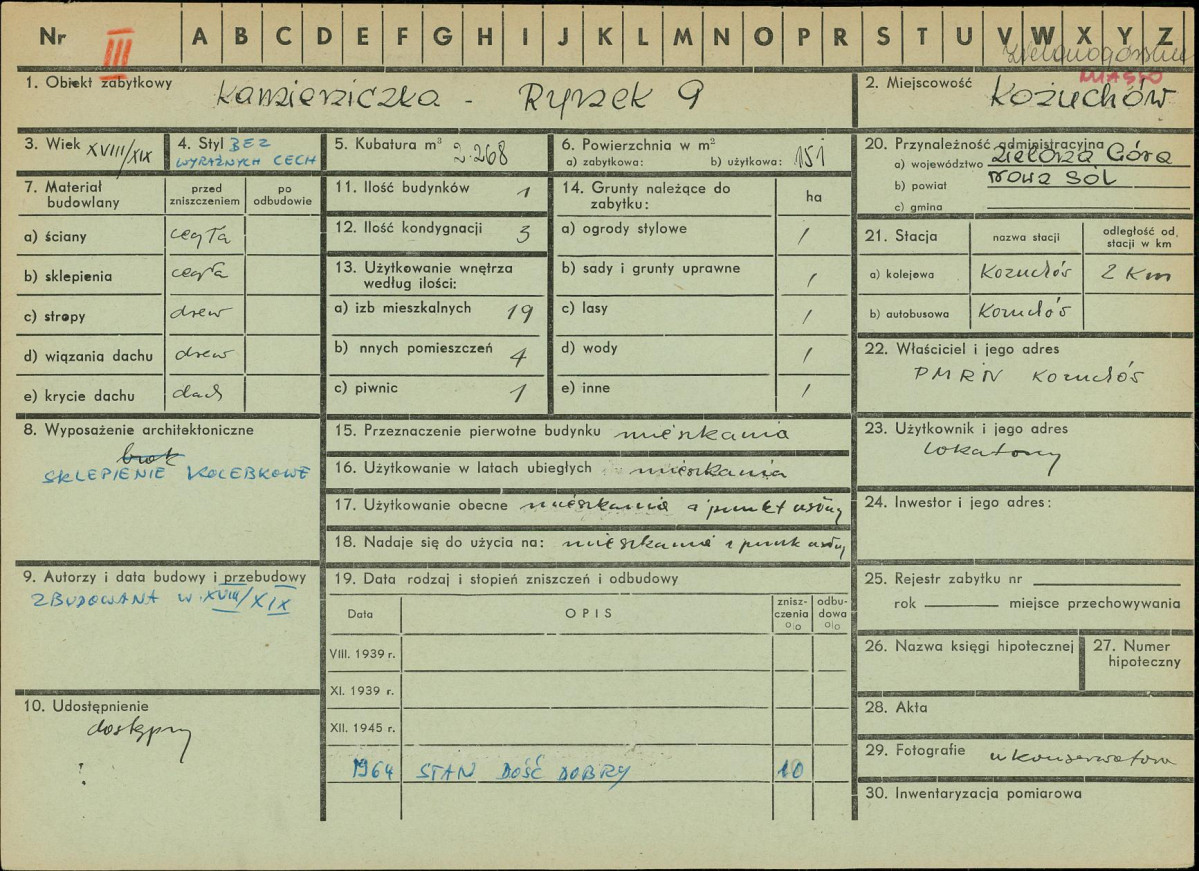 Nr III A B C D E F G H I J K L M N O P R S T U V W X Y Z
Zielonogórskie
1. Obiekt zabytkowy Kamieniczka - Rynek 9
MIASTO
2. Miejscowość Kożuchów
3. Wiek XVIII/XIX
4. Styl BEZ
WYRAŹNYCH CECH
5. Kubatura m³ 2.268
6. Powierzchnia w m²
a) zabytkowa: b) użytkowa: 151
20. Przynależność administracyjna
a) województwo Zielona Góra
b) powiat Nowa Sól
c) gmina
7. Materiał
budowlany
przed
zniszczeniem
po
odbudowie
a) ściany cegła
b) sklepienia cegła
c) stropy drew
d) wiązania dachu drew
e) krycie dachu dach
11. Ilość budynków 1
12. Ilość kondygnacji 3
13. Użytkowanie wnętrza
według ilości:
a) izb mieszkalnych 19
b) nnych pomieszczeń 4
c) piwnic 1
14. Grunty należące do
zabytku:
ha
a) ogrody stylowe /
b) sady i grunty uprawne /
c) lasy /
d) wody /
e) inne /
21. Stacja nazwa stacji odległość od
stacji w km
a) kolejowa Kożuchów 2 Km
b) autobusowa Kożuchów
22. Właściciel i jego adres
PMRN Kożuchów
8. Wyposażenie architektoniczne
brak
SKLEPIENIE KOLEBKOWE
15. Przeznaczenie pierwotne budynku mieszkania
16. Użytkowanie w latach ubiegłych mieszkania
17. Użytkowanie obecne mieszkania i punkt usług
18. Nadaje się do użycia na: mieszkania i punk usług
23. Użytkownik i jego adres
lokatorzy
24. Inwestor i jego adres:
9. Autorzy i data budowy i przebudowy
ZBUDOWANA W XVIII/XIX
19. Data rodzaj i stopień zniszczeń i odbudowy
Data OPIS znisz-
czenia
o|o
odbu-
dowa
o|o
VIII. 1939 r.
XI. 1939 r.
XII. 1945 r.
1964 STAN DOŚĆ DOBRY 10
25. Rejestr zabytku nr
rok miejsce przechowywania
26. Nazwa księgi hipotecznej
27. Numer
hipoteczny
10. Udostępnienie
dostępny
28. Akta
29. Fotografie u Konserwatora
30. Inwentaryzacja pomiarowa